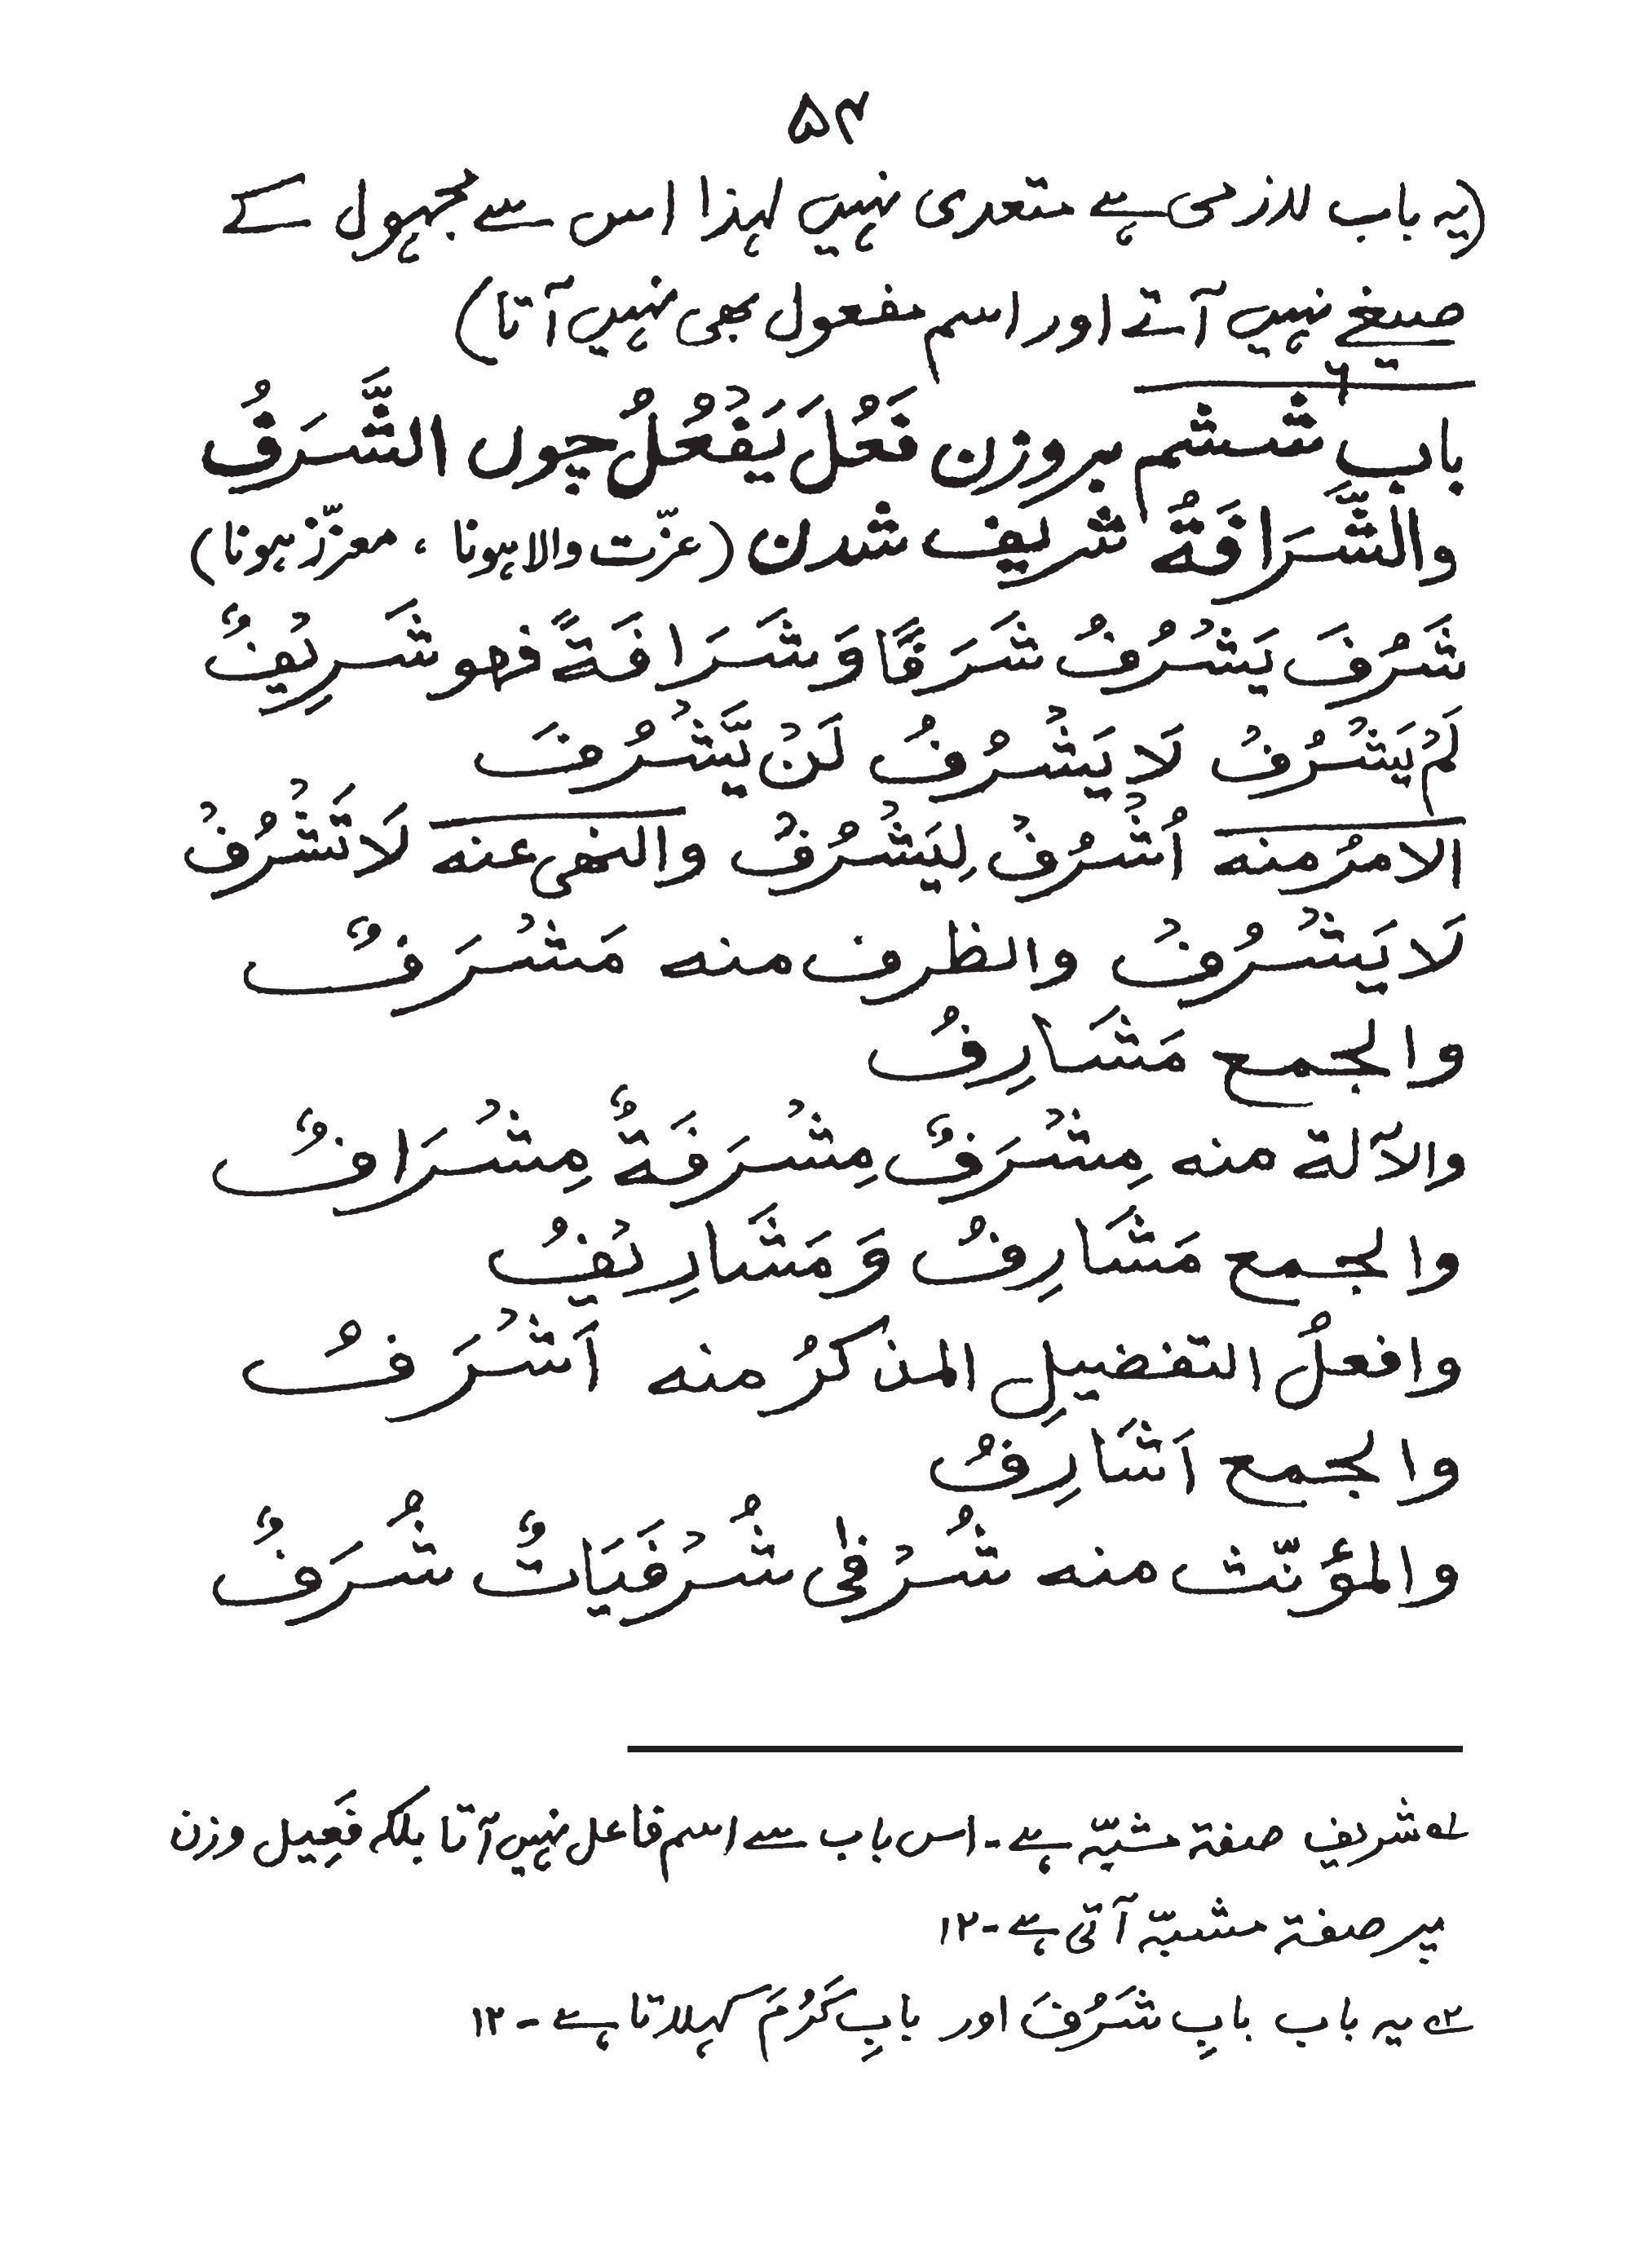 ۵۴
(یہ باب لازمی ہے متعدی نہیں لہذا اس سے مجہول کے
صیغے نہیں آتے اور اسم مفعول بھی نہیں آتا)
باب ششم بروزن فَعُلَ يَفْعُلُ چوں الشَّرَفُ
والشَّرَافَةُ شریف شدن (عزّت والا ہونا ، معزّز ہونا)
شَرُفَ يَشْرُفُ شَرَفًا وَ شَرَافَةً فهو شَرِيْفٌ
لَمْ يَشْرُفْ لَا يَشْرُفُ لَنْ يَّشْرُفَ
الامرُ منه اُشْرُفْ لِيَشْرُفْ والنهى عنه لَا تَشْرُفْ
لَا يَشْرُفْ والظرف منه مَشْرَفٌ
والجمع مَشَارِفُ
والآلة منه مِشْرَفٌ مِشْرَفَةٌ مِشْرَافٌ
والجمع مَشَارِفُ وَ مَشَارِيْفُ
وافعلُ التفضيلِ المذكرُ منه اَشْرَفُ
والجمع اَشَارِفُ
والمؤنّث منه شُرْفٰى شُرْفَيَاتٌ شُرَفٌ
۱؎ شریف صفة مشبّہ ہے ۔ اس باب سے اسم فاعل نہیں آتا بلکہ فَعِیل وزن
پر صفة مشبّہ آتی ہے ۔ ۱۲
۲؎ یہ باب بابِ شَرُفَ اور بابِ كَرُمَ کہلاتا ہے ۔ ۱۲